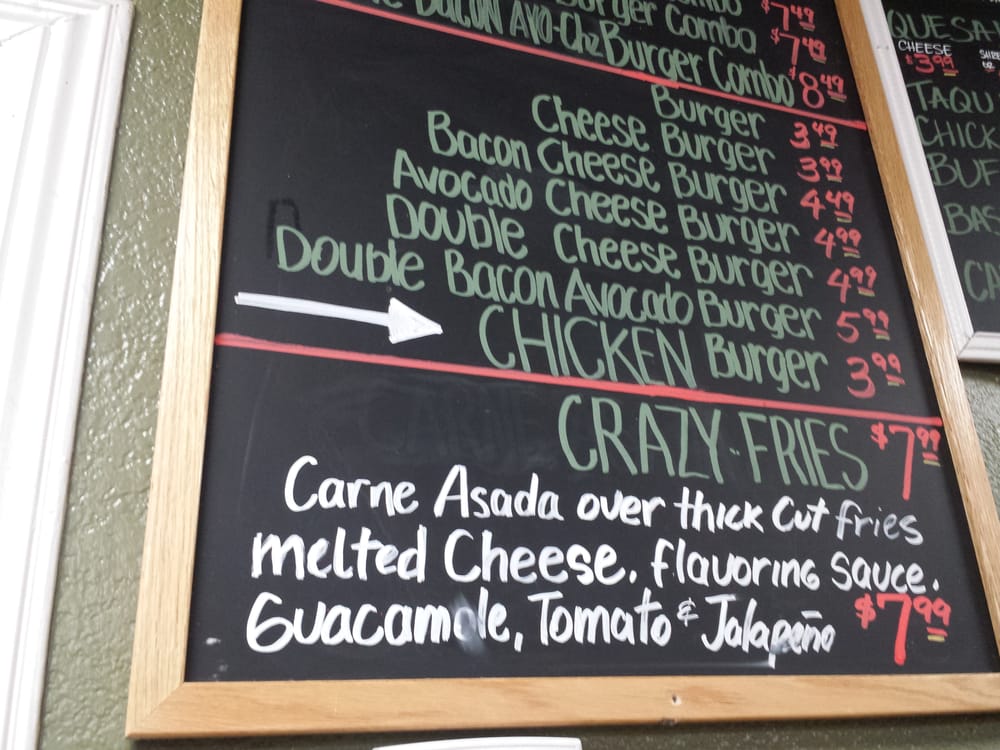 Burger Combo $7.49
Bacon Avo-Chz Burger Combo $7.49
$8.49
Burger 3.49
Cheese Burger 3.99
Bacon Cheese Burger 4.49
Avocado Cheese Burger 4.99
Double Cheese Burger 4.99
Double Bacon Avocado Burger 5.99
CHICKEN Burger 3.99
CRAZY-FRIES $7.99
Carne Asada over thick cut fries
melted Cheese. flavoring sauce.
Guacamole, Tomato & Jalapeño $7.99
CHEESE
$3.99
TAQU
CHICK
BUF
BAS
CA